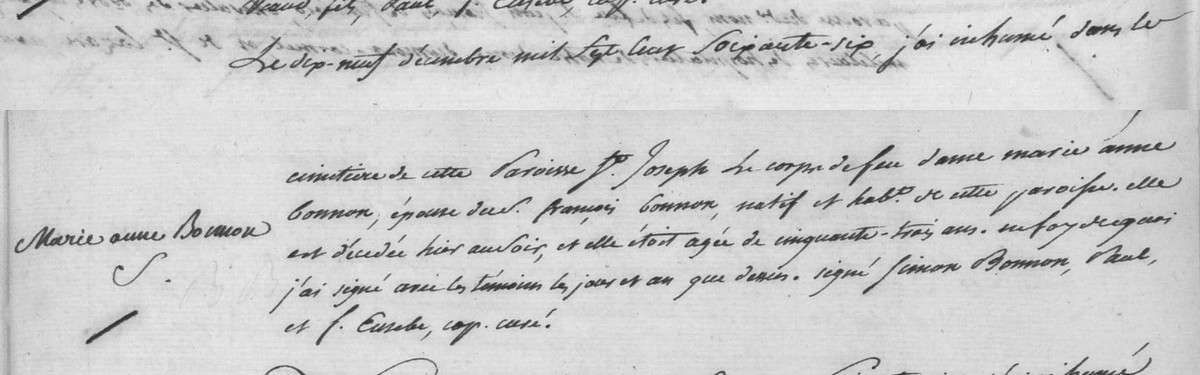 fils, Paul f. Eusebe, cap. curé.
Le dix-neuf décembre mil sept cent soixante-six, j'ai inhumé dans le
cimitière de cette Paroisse St. Joseph Le corps de feu dame marie anne
Bonnon, épouse du S. françois Bonnon, natif et habt. de cette paroisse. elle
Marie anne Bonnon
est décedée hier au soir, et elle étoit agée de cinquante-trois ans. en foy de quoi
S.
j'ai signé avec les témoins les jour et an que dessus. signé Simon Bonnon, Paul,
et f. Eusebe, cap. curé.
inhumé